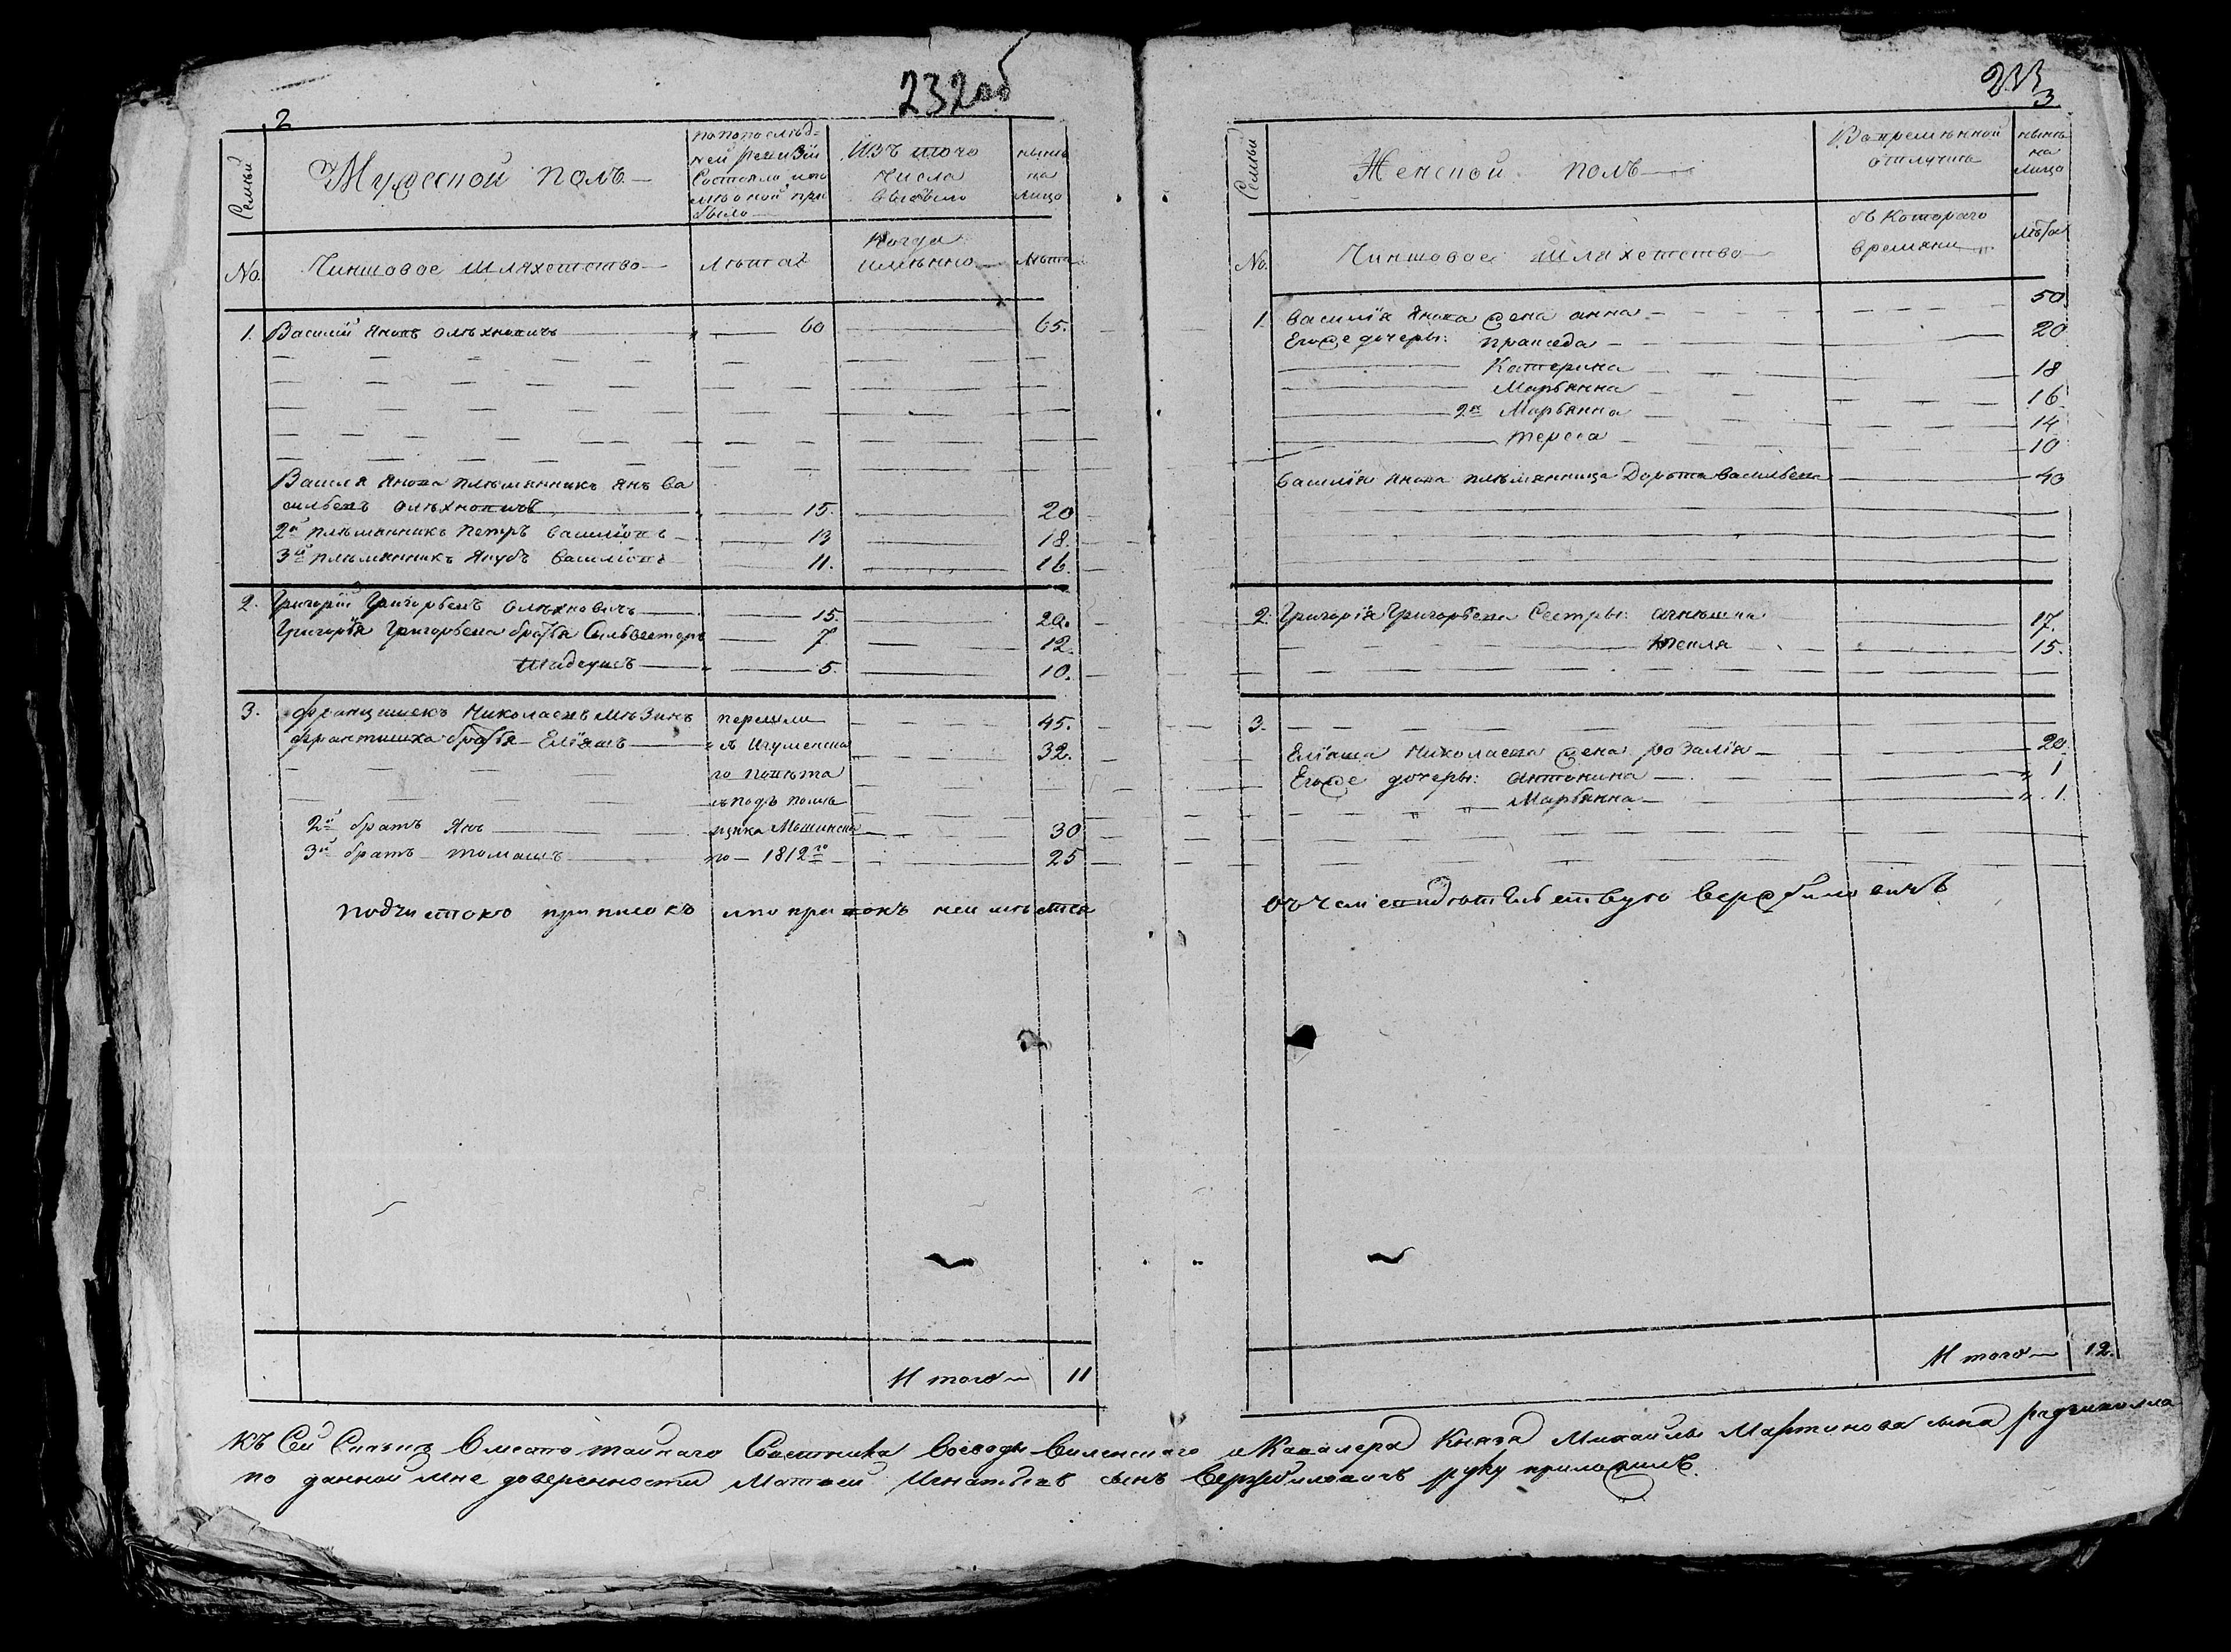 232об
2
Семьи
Мужеской полъ
по попослѣд-
ней ревизіи
Состояло ипо
слѣ оной при
было
Изъ того
числа
выбыло
нынѣ
на
лицо
№
Чиншовое шляхетство
Лѣта
Когда
имѣнно
Лѣта
1. Василій Яновъ Олѣхновичъ 60 65.
Василя Янова племянникъ Янъ Ва
сильевъ Олѣхновичъ 15. 20
2й племянникъ Петръ Василіовъ 13 18.
3й племянникъ Якубъ Василіовъ 11. 16.
2. Григорій Григорьевъ Олѣхновичъ 15. 20.
Григорья Григорьева братья Сильвестеръ 7. 12.
Тадеушъ 5. 10.
3. Францишекъ Николаевъ перешли 45.
Франтишка братья Еліяшъ съ Игуменска 32.
го повѣта
съ подъ помѣ
2й братъ Янъ щика 30
3й братъ Томашъ го 1812го 25
Подчистокъ приписокъ ипоправокъ неимѣется
Итого 11
233
3
Семьи
Женской полъ
Вовременной
отлучкѣ
нынѣ
на
лицо
№
Чиншовое шляхетство
съ Котораго
времяни
лѣта
1. Василія Янова жена анна 50
Егоже дочеры: Праксeда 20
Катерина 18
Марьянна 16
2я Марьянна 14
Тереса 10
Василія Янова племянница Дорота Васильева 40
2. Григорія Григорьева Сестры: Агнѣшка 17.
Текля 15.
3.
Еліяша Николаева жена розалія 20.
Егоже дочеры: Антонина „ 1
„ Марьянна „ 1.
Въчем свидѣтельствую Вержбиловичъ
Итого 12.
Къ Сей Сказкѣ вместо тайнаго Советника Воеводы Виленскаго и Кавалера Князя Михайлы Мартинова сына радзивилла
по данной мне доверенности Матвей Игнатьевъ сынъ Вержбиловичъ руку приложилъ.